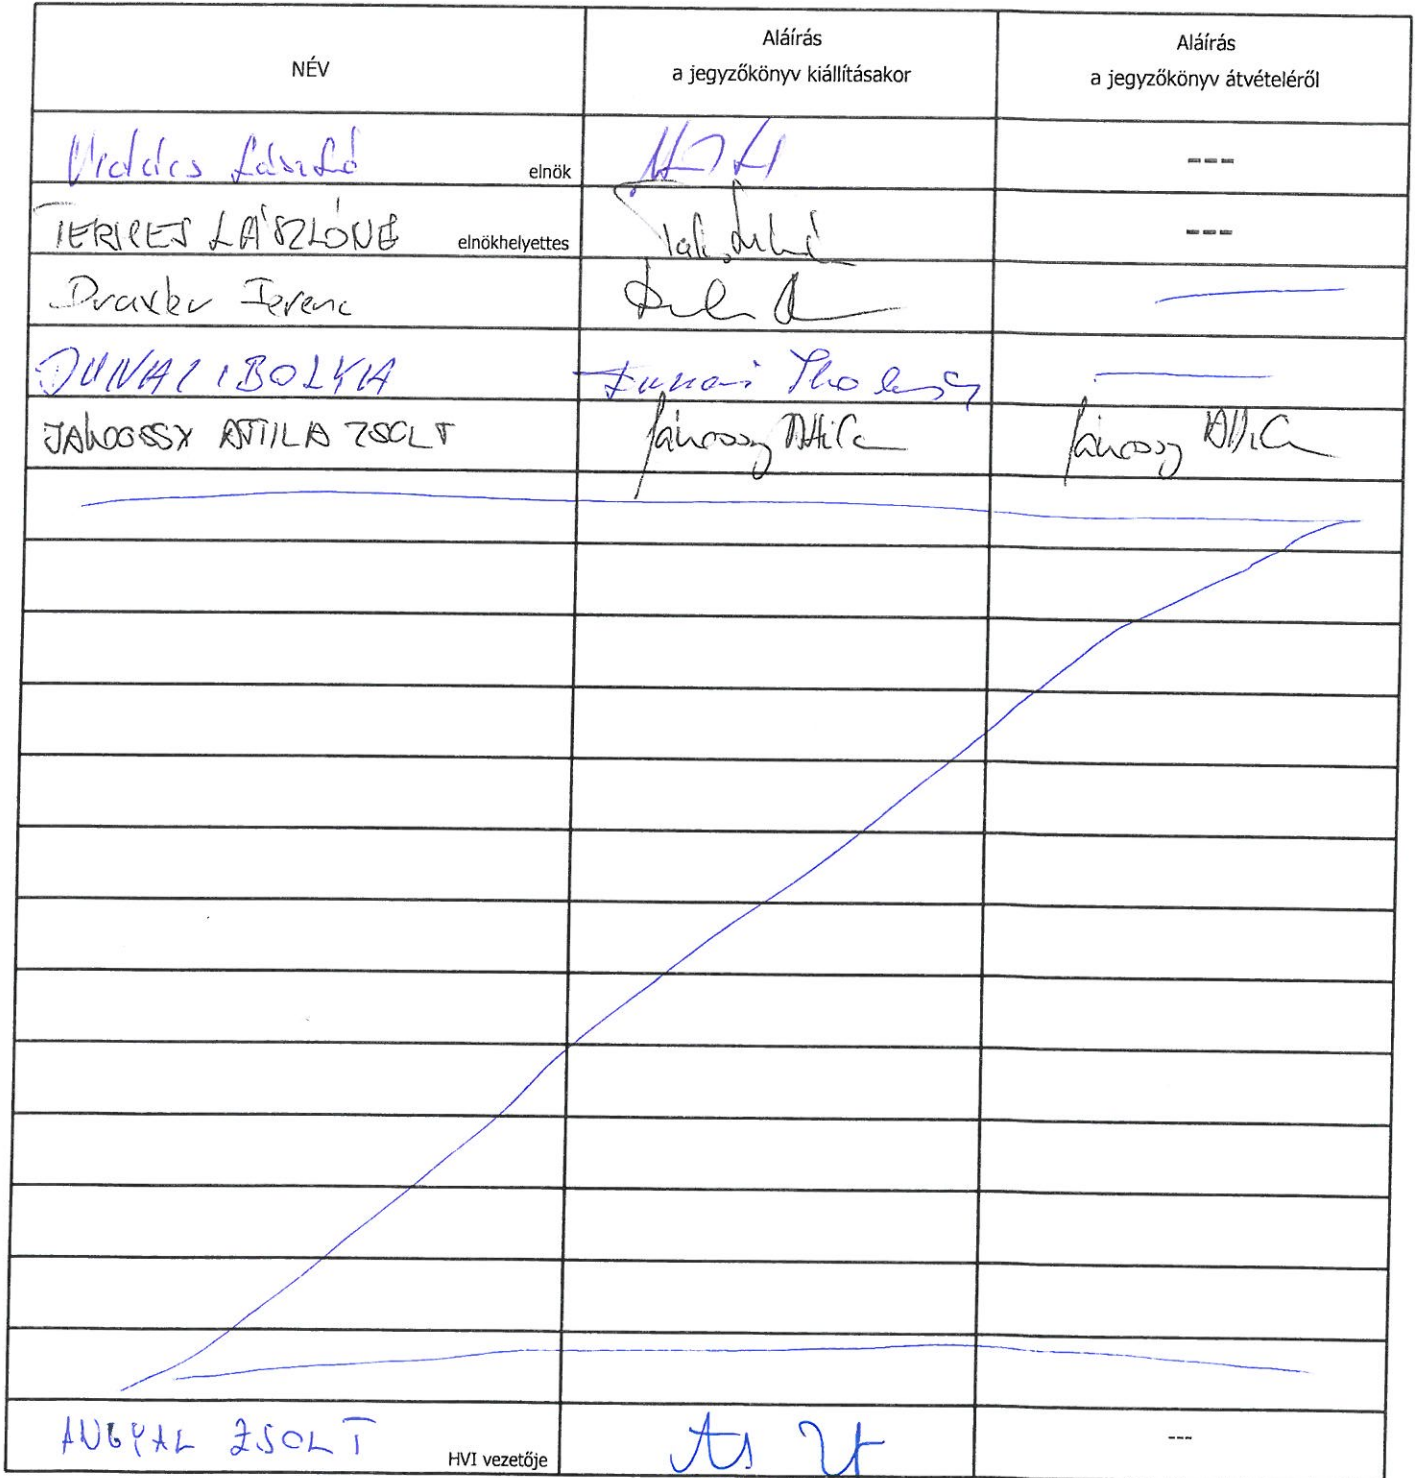 NÉV
Aláírás
a jegyzőkönyv kiállításakor
Aláírás
a jegyzőkönyv átvételéről
Vidács László elnök
---
LÁSZLÓNÉ elnökhelyettes
---
Draxler Ferenc
DUNAI IBOLYA Dunai Ibolya
ATTILA ZSOLT Attila Attila
ANGYAL ZSOLT HVI vezetője
---